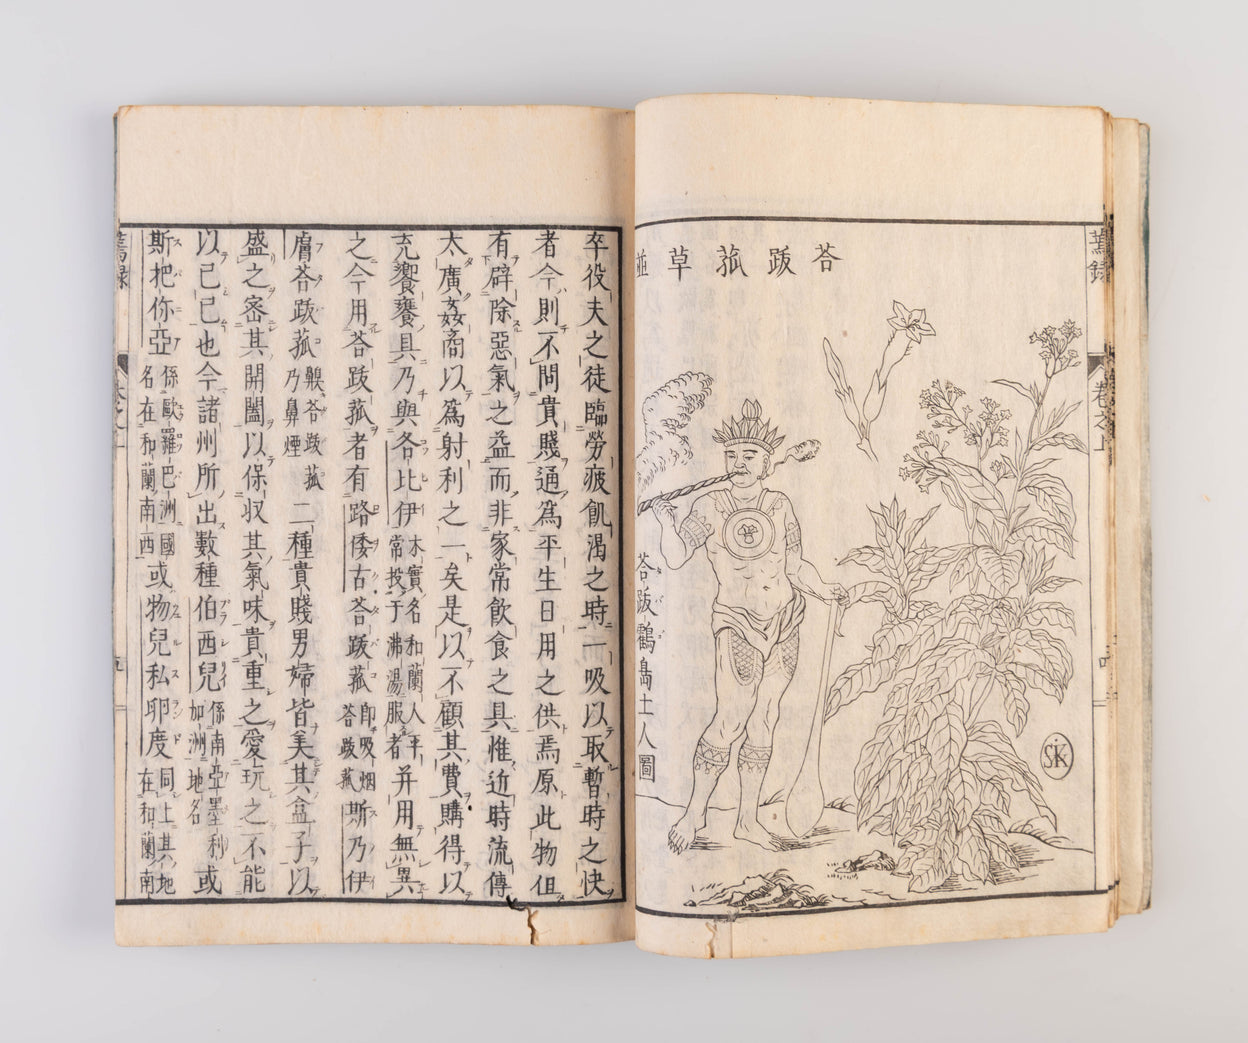 荅跋菰草並
荅跋鸖島土人圖
SK
蔫錄
卷之上
卒役夫之徒臨勞疲飢渴之時一吸以取暫時之快
者今則不問貴賤通爲平生日用之供焉原此物但
有辟除惡氣之益而非家常飲食之具惟近時流傳
太廣姦商以爲射利之一矣是以不顧其費購得以
充饗饔具乃與各比伊木實名和蘭人平常投于沸湯服者并用無異
之今用荅跋菰者有路倭古荅跋菰卽吸烟荅跋菰斯乃伊
膚荅跋菰齅荅跋菰乃鼻煙二種貴賤男婦皆美其盒子以
盛之密其開闔以保収其氣味貴重之愛玩之不能
以已已也今諸州所出數種伯西兒係南亞墨利加洲地名或
斯把你亞係歐羅巴洲國名在和蘭南西或物兒私卯度同上其地在和蘭南
蔫錄